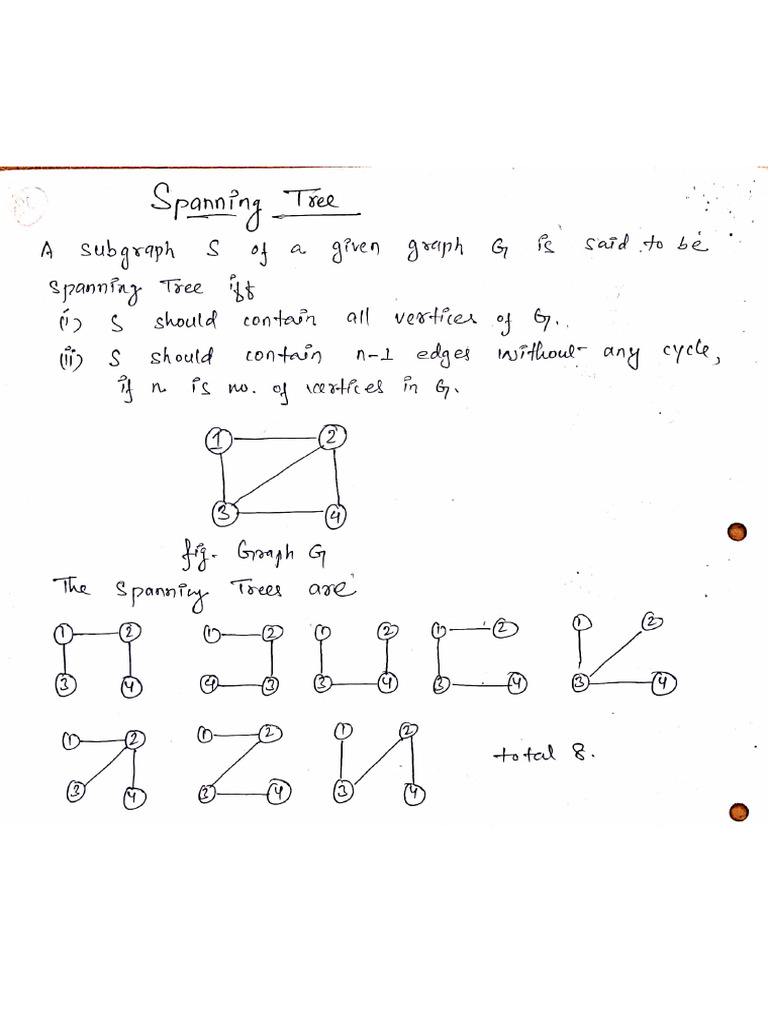 Spanning Tree
A subgraph S of a given graph G is said to be
spanning Tree iff
(i) S should contain all vertices of G.
(ii) S should contain n-1 edges without any cycle,
if n is no. of vertices in G.
1 2
3 4
fig. Graph G
The Spanning Trees are
1 2 1 2 1 2 1 2 1 2
3 4 4 3 3 4 3 4 3 4
1 2 1 2 1 2
total 8.
3 4 3 4 3 4